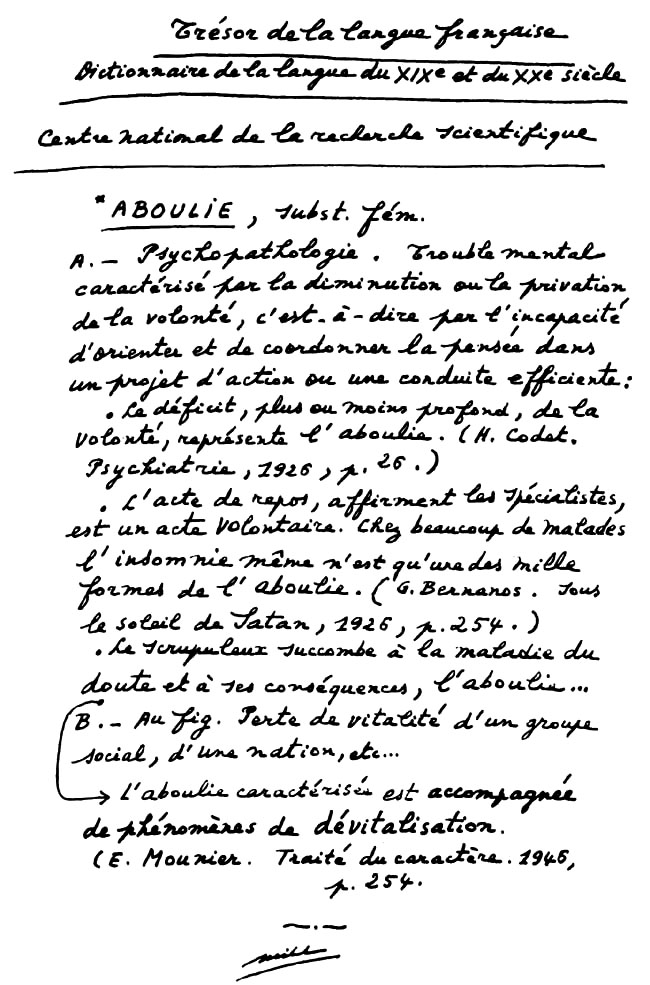 Trésor de la langue française
Dictionnaire de la langue du XIXe et du XXe siècle
Centre national de la recherche scientifique
*ABOULIE, subst. fém.
A. – Psychopathologie. Trouble mental
caractérisé par la diminution ou la privation
de la volonté, c'est-à-dire par l'incapacité
d'orienter et de coordonner la pensée dans
un projet d'action ou une conduite efficiente :
. Le déficit, plus ou moins profond, de la
volonté, représente l'aboulie. (H. Codet.
Psychiatrie, 1926, p. 26.)
. L'acte de repos, affirment les spécialistes,
est un acte volontaire. Chez beaucoup de malades
l'insomnie même n'est qu'une des mille
formes de l'aboulie. (G. Bernanos. Sous
le soleil de Satan, 1926, p. 254.)
. Le scrupuleux succombe à la maladie du
doute et à ses conséquences, l'aboulie...
B. – Au fig. Perte de vitalité d'un groupe
social, d'une nation, etc...
→ L'aboulie caractérisée est accompagnée
de phénomènes de dévitalisation.
(E. Mounier. Traité du caractère. 1946,
p. 254.